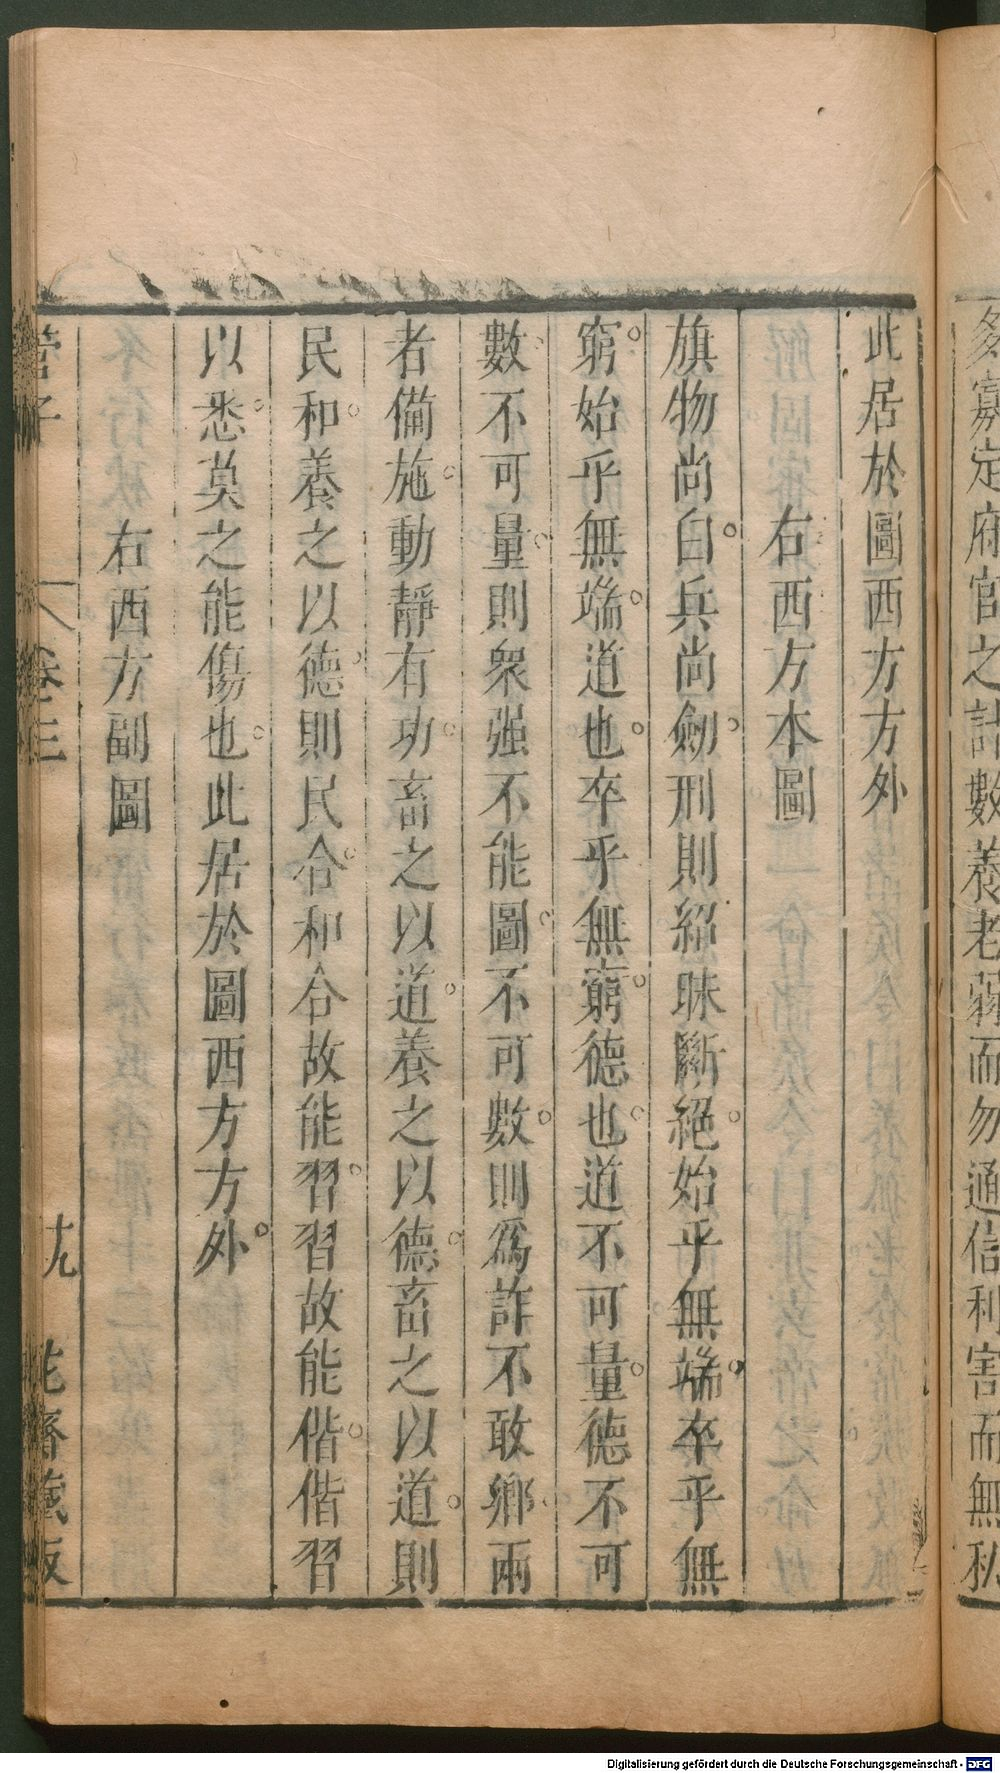 多寡定府官之計數養老弱而勿通信利害而無私
此居於圖西方方外
右西方本圖
旗物尚白兵尚劒刑則紹昧斷絕始乎無端卒乎無
窮始乎無端道也卒乎無窮德也道不可量德不可
數不可量則衆强不能圖不可數則爲詐不敢鄉兩
者備施動靜有功畜之以道養之以德畜之以道則
民和養之以德則民合和合故能習習故能偕偕習
以悉莫之能傷也此居於圖西方方外
右西方副圖
管子
卷三
十九
花齋藏版
Digitalisierung gefördert durch die Deutsche Forschungsgemeinschaft - DFG